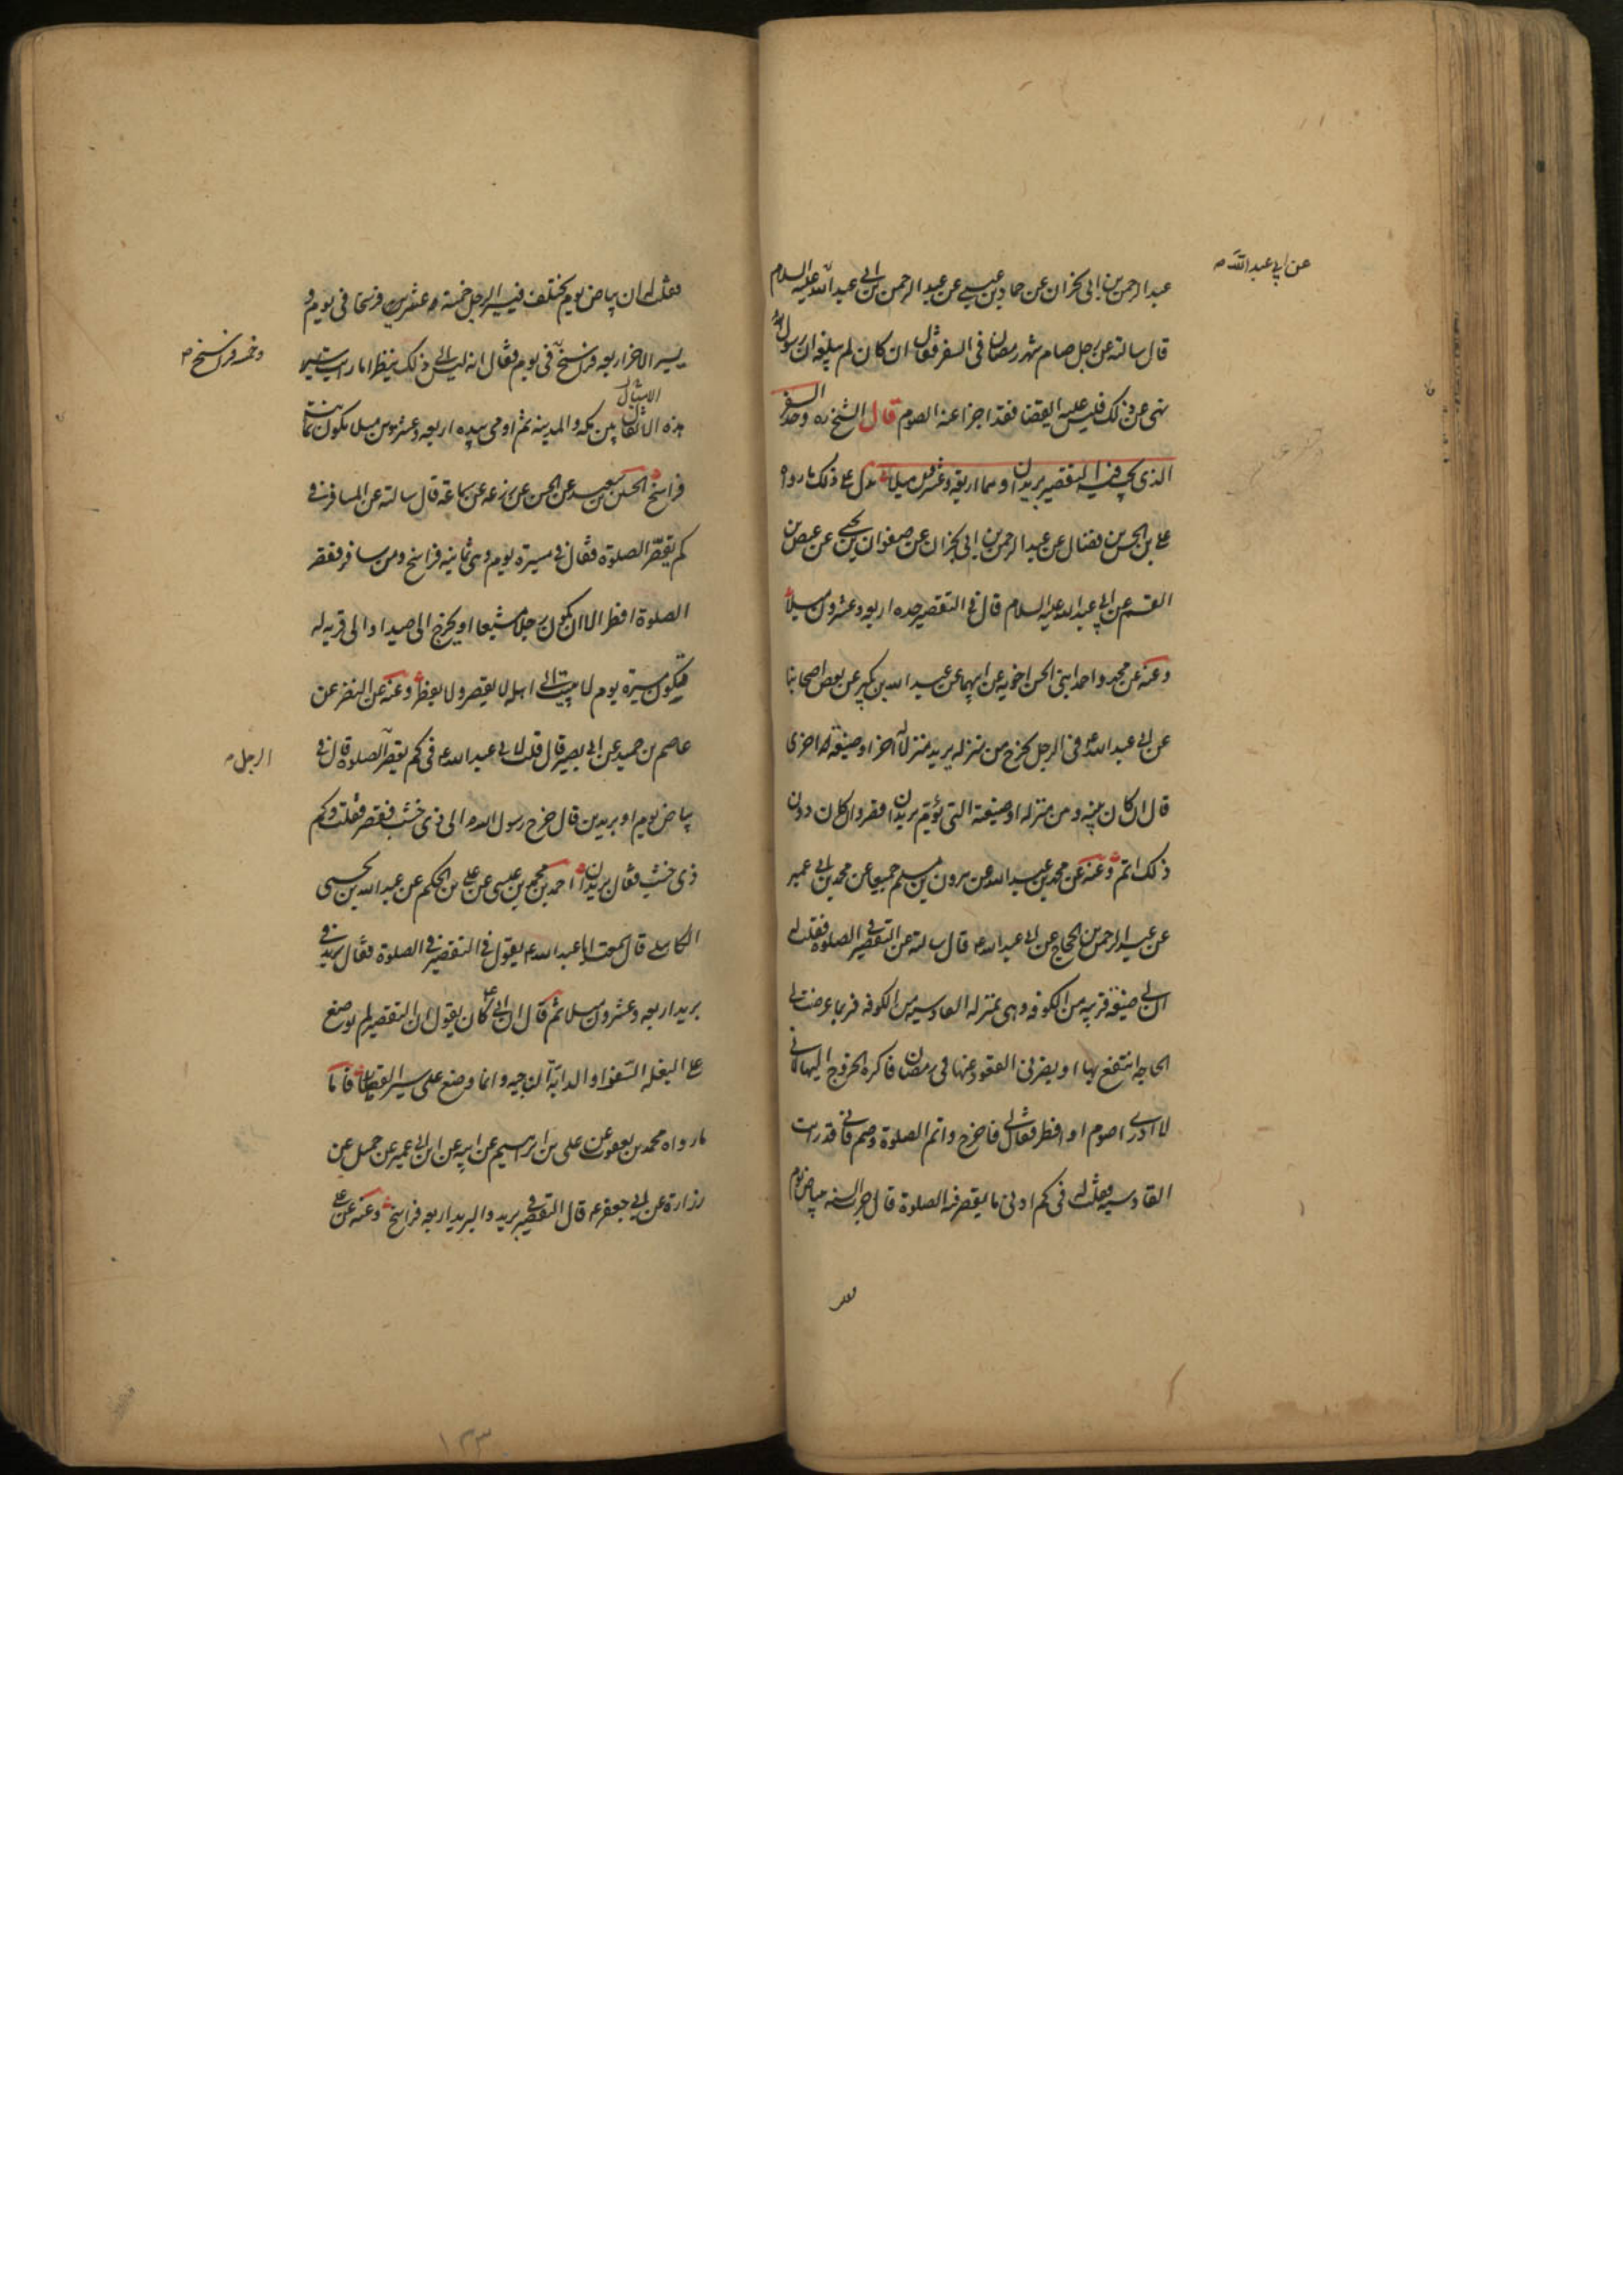 عن ابي عبد الله
عبد الرحمن بن ابى نجران عن حماد بن عيسى عن عبد الرحمن بن ابى عبد الله عليه السلام
قال سالته عن رجل صام شهر رمضان فى السفر فقال ان كان لم يبلغه ان رسول الله
نهى عن ذلك فليس عليه القضا فقد اجزا عنه الصوم قال الشيخ ره وحد السفر
الذى يجب فيه التقصير بريدان وهما اربعة وعشرون ميلا يدل على ذلك ما رواه
على بن الحسن بن فضال عن عبد الرحمن بن ابى نجران عن صفوان بن يحيى عن عيص بن
القسم عن ابى عبد الله عليه السلام قال فى التقصير حده اربعه وعشرون ميلا
وعنه عن محمد واحمد ابنى الحسن اخويه عن ابيهما عن عبد الله بن بكير عن بعض اصحابنا
عن ابى عبد الله ع فى الرجل يخرج من منزله يريد منزلا اخر او ضيعة له اخرى
قال ان كان بينه ومن منزله او ضيعته التى يؤم بريدان قصر وان كان دون
ذلك اتم وعنه عن محمد بن عبد الله عن هرون بن مسلم جميعا عن محمد بن ابى عمير
عن عبد الرحمن بن الحجاج عن ابى عبد الله ع قال سالته عن التقصير فى الصلوة فقلت له
ان لى ضيعة قريبه من الكوفه وهى بمنزله القادسيه من الكوفه فربما عرضت لى
الحاجه انتفع بها او يضر بى القعود عنها فى رمضان فاكره الخروج اليها لانى
لا ادرى اصوم او افطر فقال لى فاخرج واتم الصلوة وصم فانى قد رايت
القادسيه فقلت له فى كم ادنى ما يقصر فيه الصلوة قال جرت السنه ببياض يوم
فقلت
فقلت له ان بياض يوم يختلف فيسير الرجل خمسة وعشرين فرسخا فى يوم و
يسير الاخر اربعه فراسخ فى يوم فقال انه ليس الى ذلك ينظر اما رايت سير
وخمسه فراسخ
الاميال
هذه الاثقال بين مكه والمدينه ثم اومى بيده اربعه وعشرون ميلا يكون ثمانية
فراسخ الحسين بن سعيد عن الحسن عن زرعه عن سماعة قال سالته عن المسافر فى
كم يقصر الصلوة فقال فى مسيرة يوم وهى ثمانيه فراسخ ومن سافر فقصر
الصلوة افطر الا ان يكون رجلا مشيعا او يخرج الى صيد او الى قريه له
فيكون مسيرة يوم لا يبيت الى اهله لا يقصر ولا يفطر وعنه عن النضر عن
عاصم بن حميد عن ابى بصير قال قلت لابى عبد الله ع فى كم يقصر الصلوة قال فى
الرجل
بياض يوم او بريدين قال خرج رسول الله ص الى ذى خشب فقصر فقلت وكم
ذى خشب فقال بريدان احمد بن محمد بن عيسى عن على بن الحكم عن عبد الله بن يحيى
الكاهلى قال سمعت ابا عبد الله ع يقول فى التقصير فى الصلوة فقال بريد فى
بريد اربعه وعشرون ميلا ثم قال ان ابى ع كان يقول ان التقصير لم يوضع
على البغله السفوا او الدابة الناجيه وانما وضع على سير القطار فاما
ما رواه محمد بن يعقوب عن على بن ابرهيم عن ابيه عن ابن ابى عمير عن جميل عن
زرارة عن ابى جعفر ع قال التقصير فى بريد والبريد اربعه فراسخ وعنه عن على
١٣٣